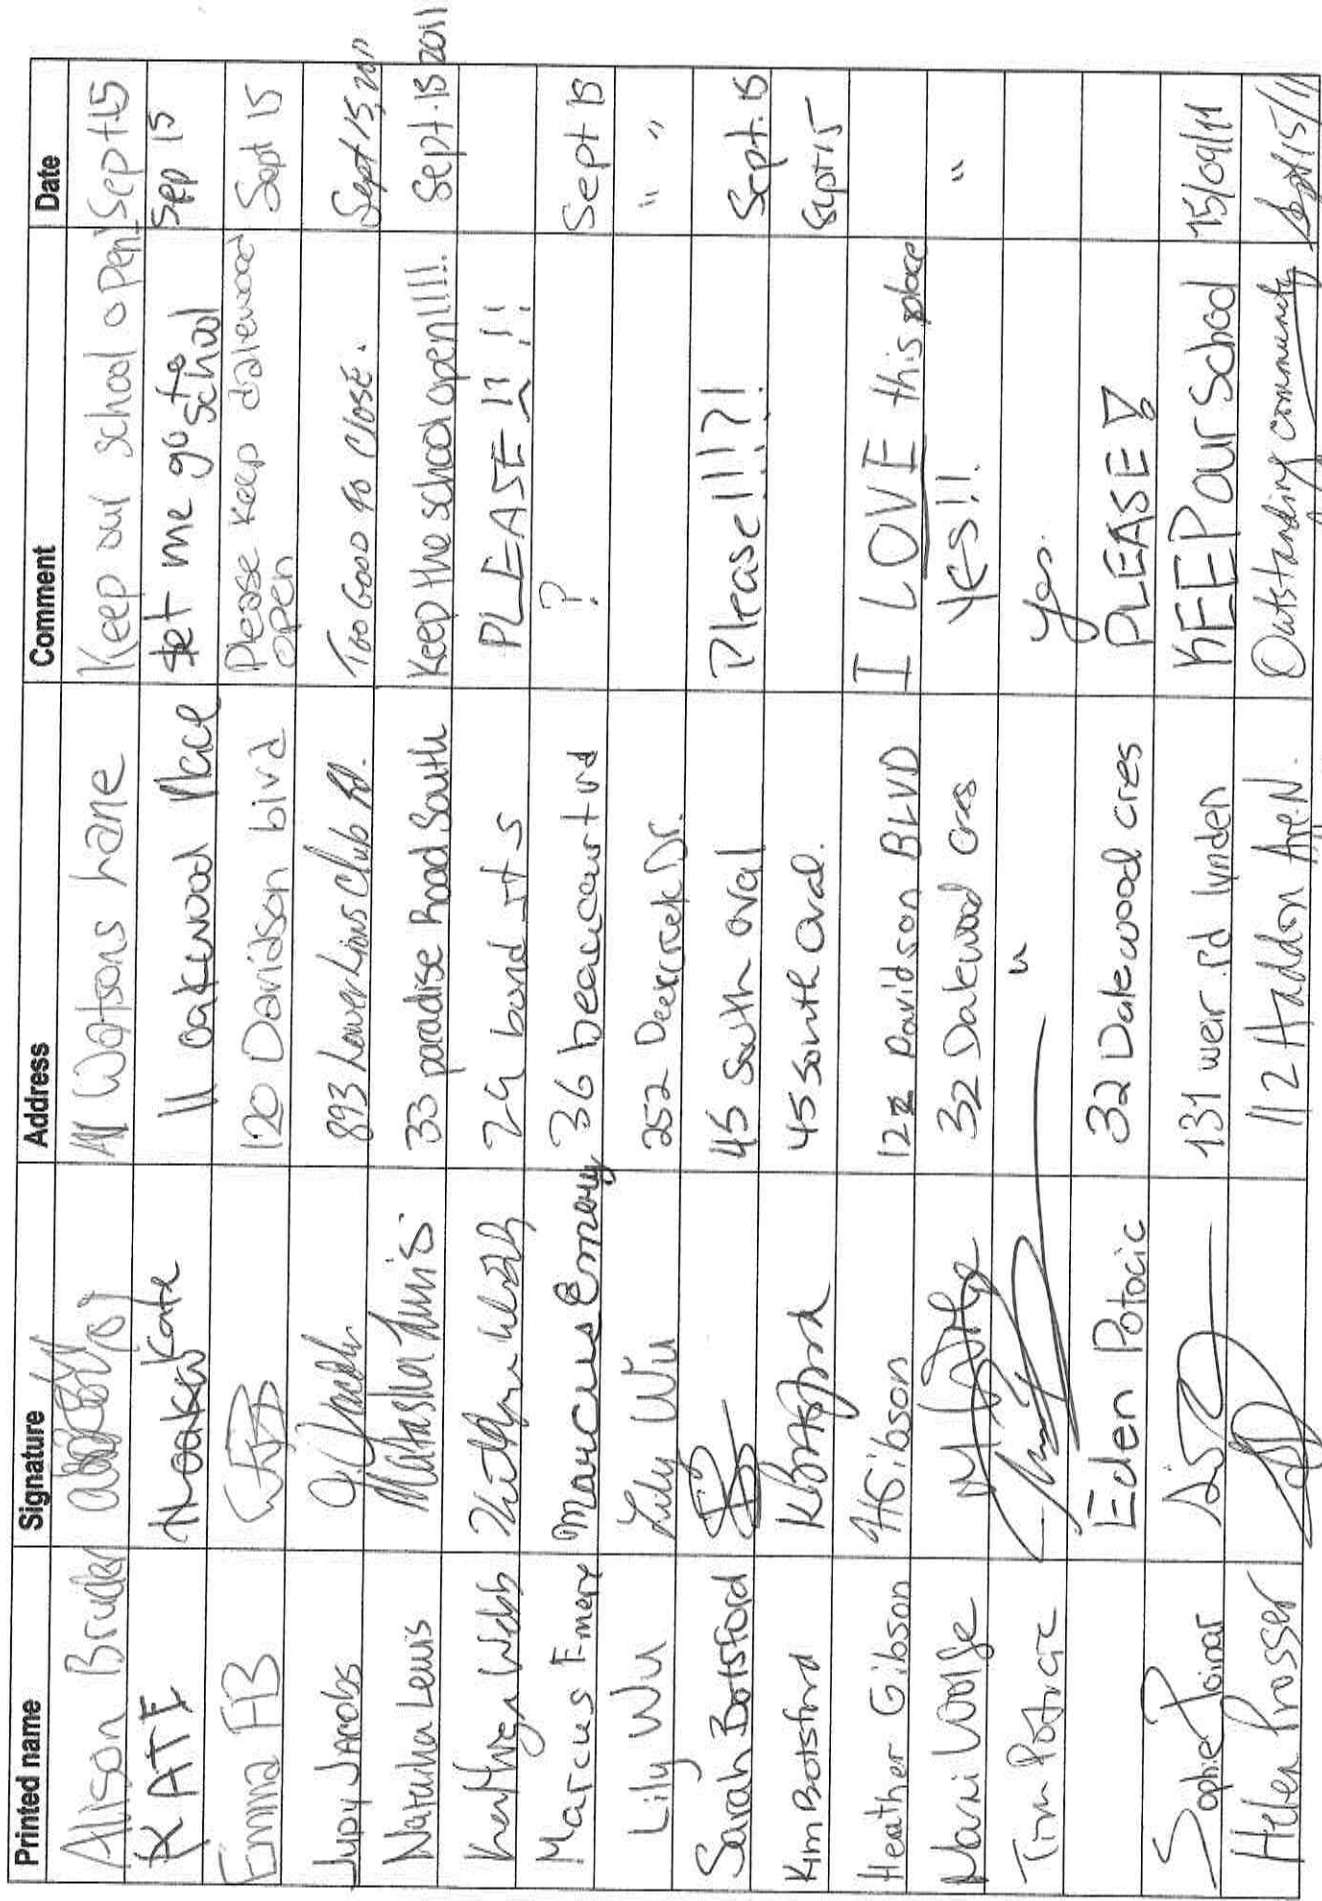 Printed name Signature Address Comment Date
Alison Bruder 11 Watsons Lane Keep our school open! Sept 15
KATE Kate 11 oakwood Place Let me go to school Sep 15
Emma HB 120 Davidson blvd Please Keep dalewood open Sept 15
Judy Jacobs J. Jacobs 893 Lower Lions Club Rd. Too Good to Close. Sept 15, 2011
Natasha Lewis Natasha Lewis 33 paradise Road South Keep the school open!!!!! Sept. 15 2011
Kaitlyn Webb Kaitlyn Webb 29 bond st s PLEASE !! !!!
Marcus Emery Marcus Emery 36 beaucourt rd ? Sept 15
Lily Wu Lily Wu 252 Deercreek Dr. " "
Sarah Botsford 45 South oval Please!!!?! Sept. 15
Kim Botsford KBotsford 45 South Oval. Sept 15
Heather Gibson HGibson 122 Davidson BLVD I LOVE this place
Marni Wolfe M Wolfe 32 Dalewood cres Yes!! "
Tim Potocic " yes.
Eden Potocic 32 Dalewood cres PLEASE!
Sophie Poinar 131 weir rd lynden KEEP our School 15/09/11
Helen Prosser 112 Haddon Ave. N. Outstanding community Sept 15/11